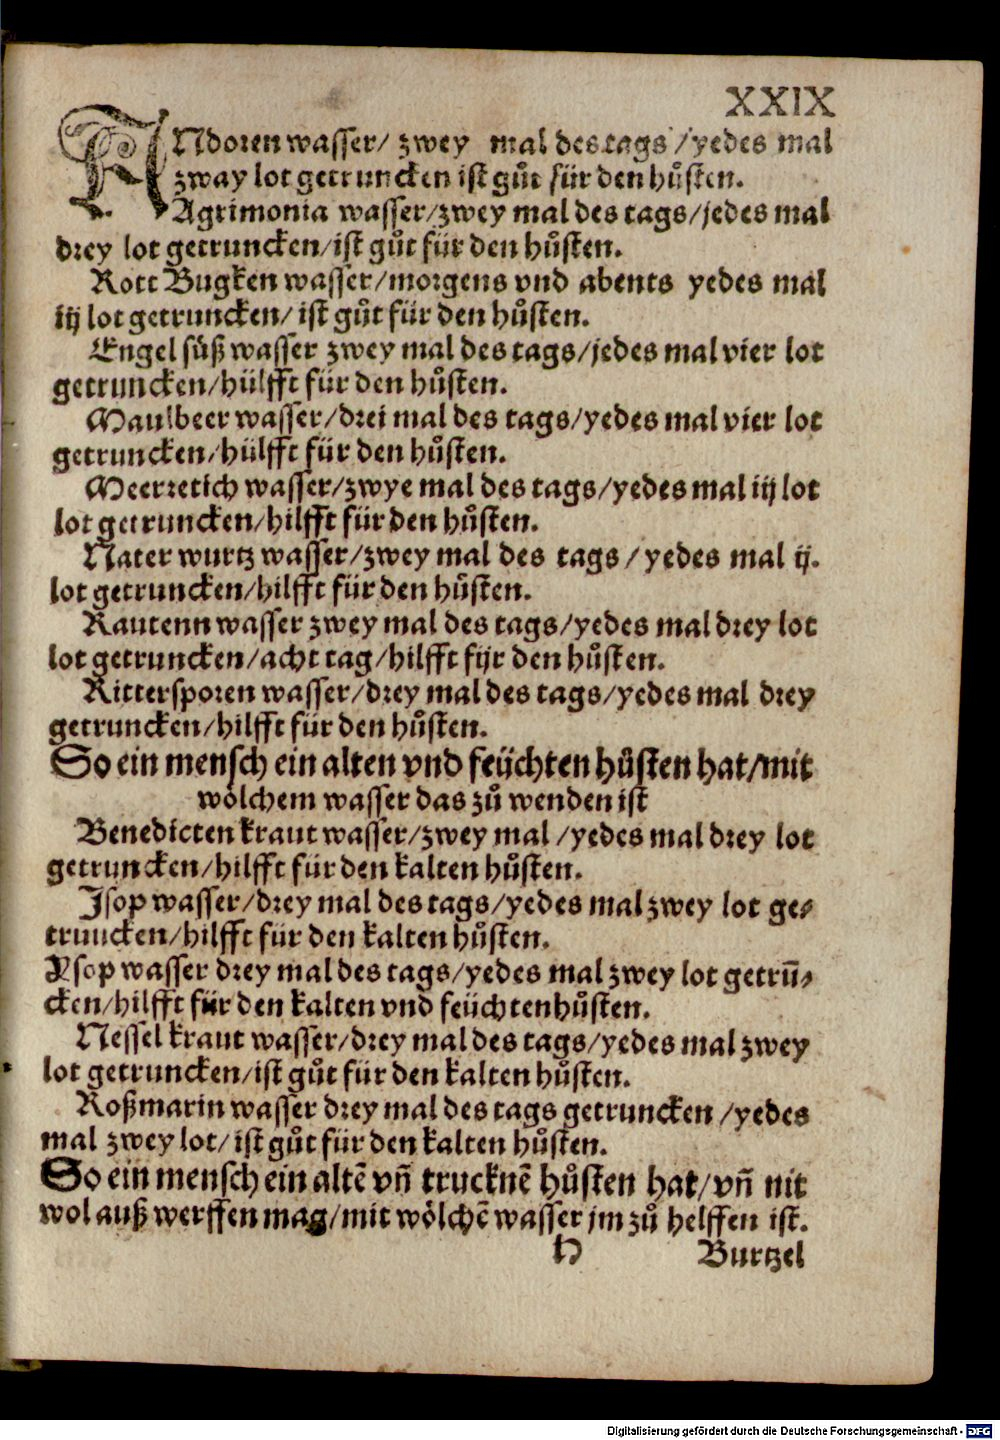 XXIX
ANdoren wasser/ zwey mal des tags /yedes mal
zway lot getruncken ist gůt für den hůsten.
Agrimonia wasser/zwey mal des tags/jedes mal
drey lot getruncken/ist gůt für den hůsten.
Rott Bugken wasser/morgens vnd abents yedes mal
iij lot getruncken/ ist gůt für den hůsten.
Engel süß wasser zwey mal des tags/jedes mal vier lot
getruncken/hülfft für den hůsten.
Maulbeer wasser/drei mal des tags/yedes mal vier lot
getruncken/hülfft für den hůsten.
Meerretich wasser/zwye mal des tags/yedes mal iij lot
lot getruncken/hilfft für den hůsten.
Nater wurtz wasser/zwey mal des tags / yedes mal ij.
lot getruncken/hilfft für den hůsten.
Rautenn wasser zwey mal des tags/yedes mal drey lot
lot getruncken/acht tag/hilfft fijr den hůsten.
Rittersporen wasser/drey mal des tags/yedes mal drey
getruncken/hilfft für den hůsten.
So ein mensch ein alten vnd feüchten hůsten hat/mit
wölchem wasser das zů wenden ist
Benedicten kraut wasser/zwey mal /yedes mal drey lot
getruncken/hilfft für den kalten hůsten.
Jsop wasser/drey mal des tags/yedes mal zwey lot ge⸗
truncken/hilfft für den kalten hůsten.
Ysop wasser drey mal des tags/yedes mal zwey lot getrūn⸗
cken/hilfft für den kalten vnd feüchten hůsten.
Nessel kraut wasser/drey mal des tags/yedes mal zwey
lot getruncken/ist gůt für den kalten hůsten.
Roßmarin wasser drey mal des tags getruncken /yedes
mal zwey lot/ ist gůt für den kalten hůsten.
So ein mensch ein altē vn̄ trucknē hůsten hat/ vn̄ nit
wol auß werffen mag/mit wölchē wasser jm zů helffen ist.
H Burtzel
Digitalisierung gefördert durch die Deutsche Forschungsgemeinschaft - DFG